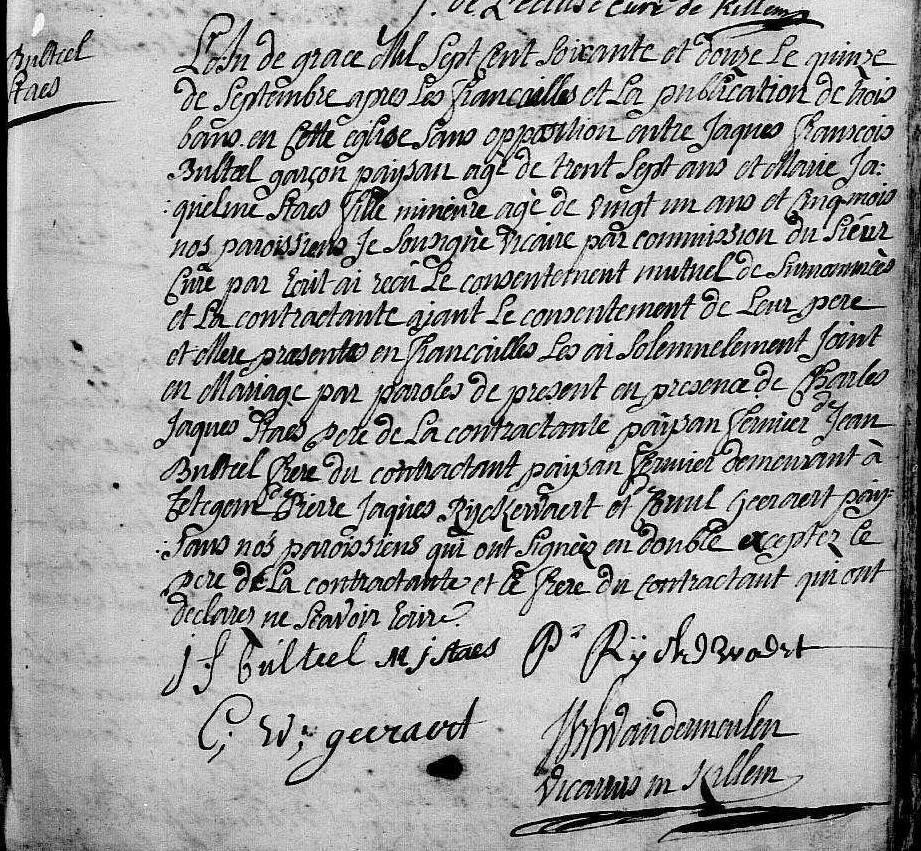 j. de L'ecluse Curé de Killem
Bulteel
Staes
L'an de grace Mil Sept Cent Soixante et douze Le quinze
de Septembre apres Les francailles et La publication de trois
bans en Cette eglise Sans opposition entre Jaques francois
Bulteel garçon païsan agé de trent Sept ans et Marie Ja:
:queline Staes fille mineure agé de vingt un ans et Cinq mois
nos paroissiens Je Sousigné vicaire par commission du Siéur
Curé par Ecrit ai recu Le consentement mutuel de Surnommées
et La contractante aiant Le consentement de Leur pere
et Mere presents en francailles Les ai Solemnelement Joint
en Mariage par paroles de present en presence de Charles
Jaques Staes pere de La contractante païsan fermier de Jean
Bulteel frere du contractant païsan fermier demeurant à
Tetegem Pierre Jaques Rijckewaert et geeraert paij-
:sans nos paroissiens qui ont Signéez en double exceptez le
pere de La contractante et le frere du contractant qui ont
declarez ne Scavoir Ecrire
j f bulteel M j Staes Pr Rijckewaert
C; W; geeraert
Vandermeulen
Vicarius in Killem